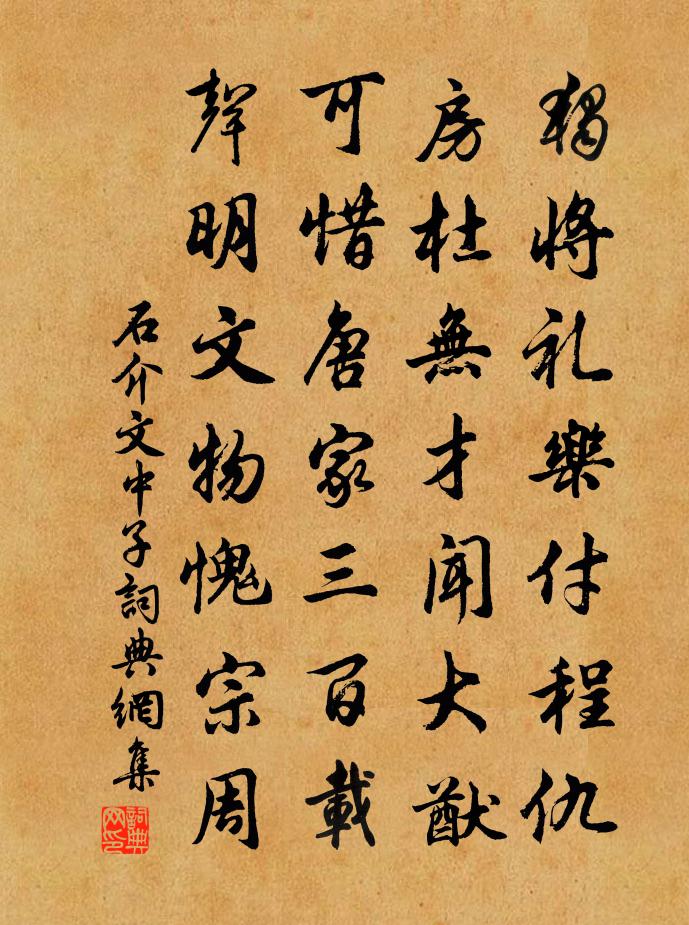 獨將礼樂付程仇
房杜無才聞大猷
可惜唐家三百載
聲明文物愧宗周
石介文中子詞典網集
詞典网印